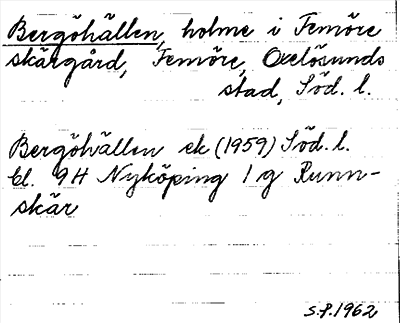 Bergöhällen, holme i Femöre
skärgård, Femöre, Oxelösunds
stad, Söd. l.
Bergöhällen ek (1959) Söd. l.
bl. 9H Nyköping 1 g Runn-
skär
S.P. 1962